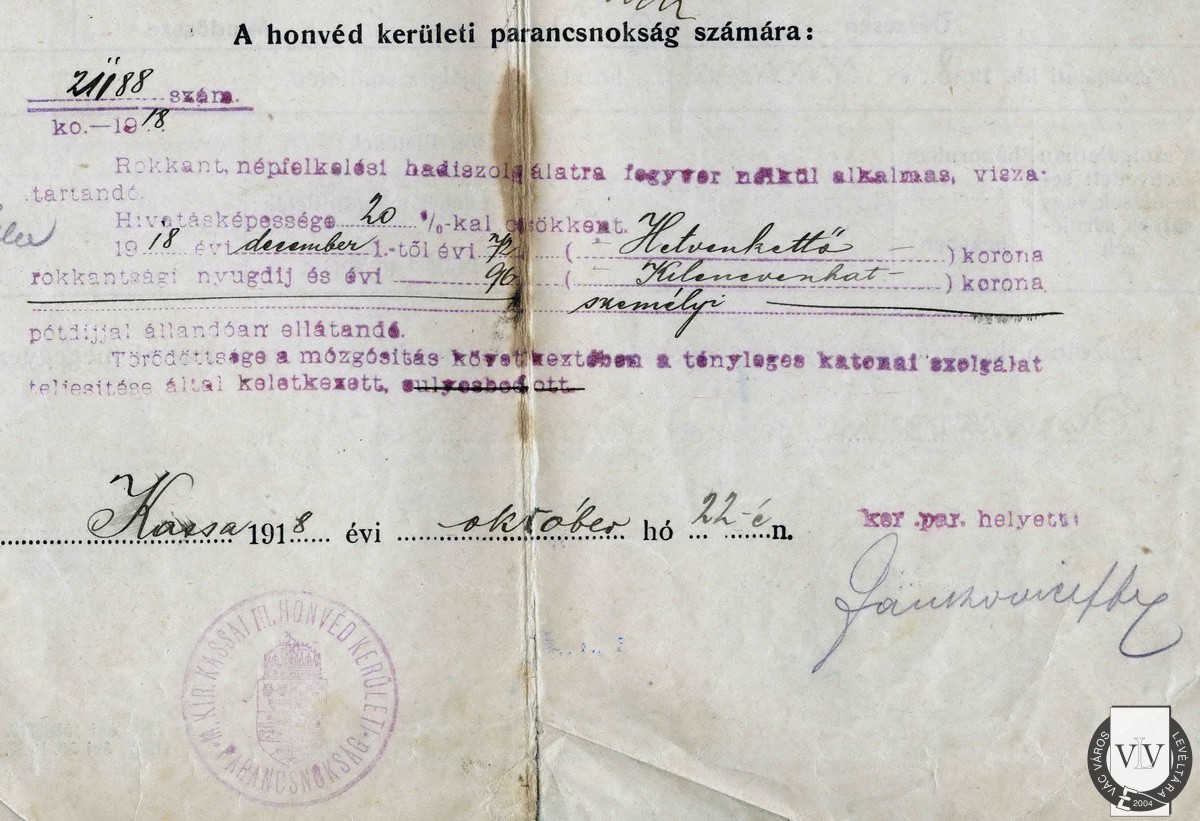 A honvéd kerületi parancsnokság számára:
21188 szám.
ko.—1918
Rokkant, népfelkelési hadiszolgálatra fegyver nélkül alkalmas, vissza-
tartandó.
Hivatásképessége 20 %-kal csökkent.
1918 évi december 1.-től évi 72 (— Hetvenkettő —) korona
rokkantsági nyugdij és évi 96 (— Kilencvenhat —) korona
személyi
pótdijjal állandóan ellátandó.
Törődöttsége a mozgósitás következtében a tényleges katonai szolgálat
teljesitése által keletkezett, sulyosbodott.
Kassa 1918 évi október hó 22-én.
ker. par. helyett:
M. KIR. KASSAI III. HONVÉD KERÜLETI PARANCSNOKSÁG
VÁC VÁROS LEVÉLTÁRA
VLV
2004